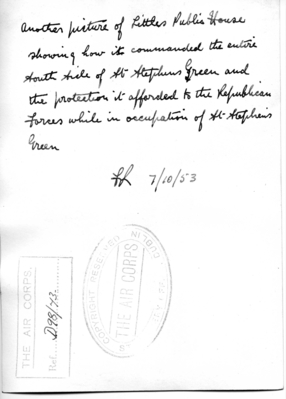 Another picture of Littles Public House
showing how it commanded the entire
South side of St Stephens Green and
the protection it afforded to the Republican
Forces while in occupation of St Stephens
Green
7/10/53
THE AIR CORPS.
Ref. D98/73.
COPYRIGHT RESERVED
THE AIR CORPS
DUBLIN